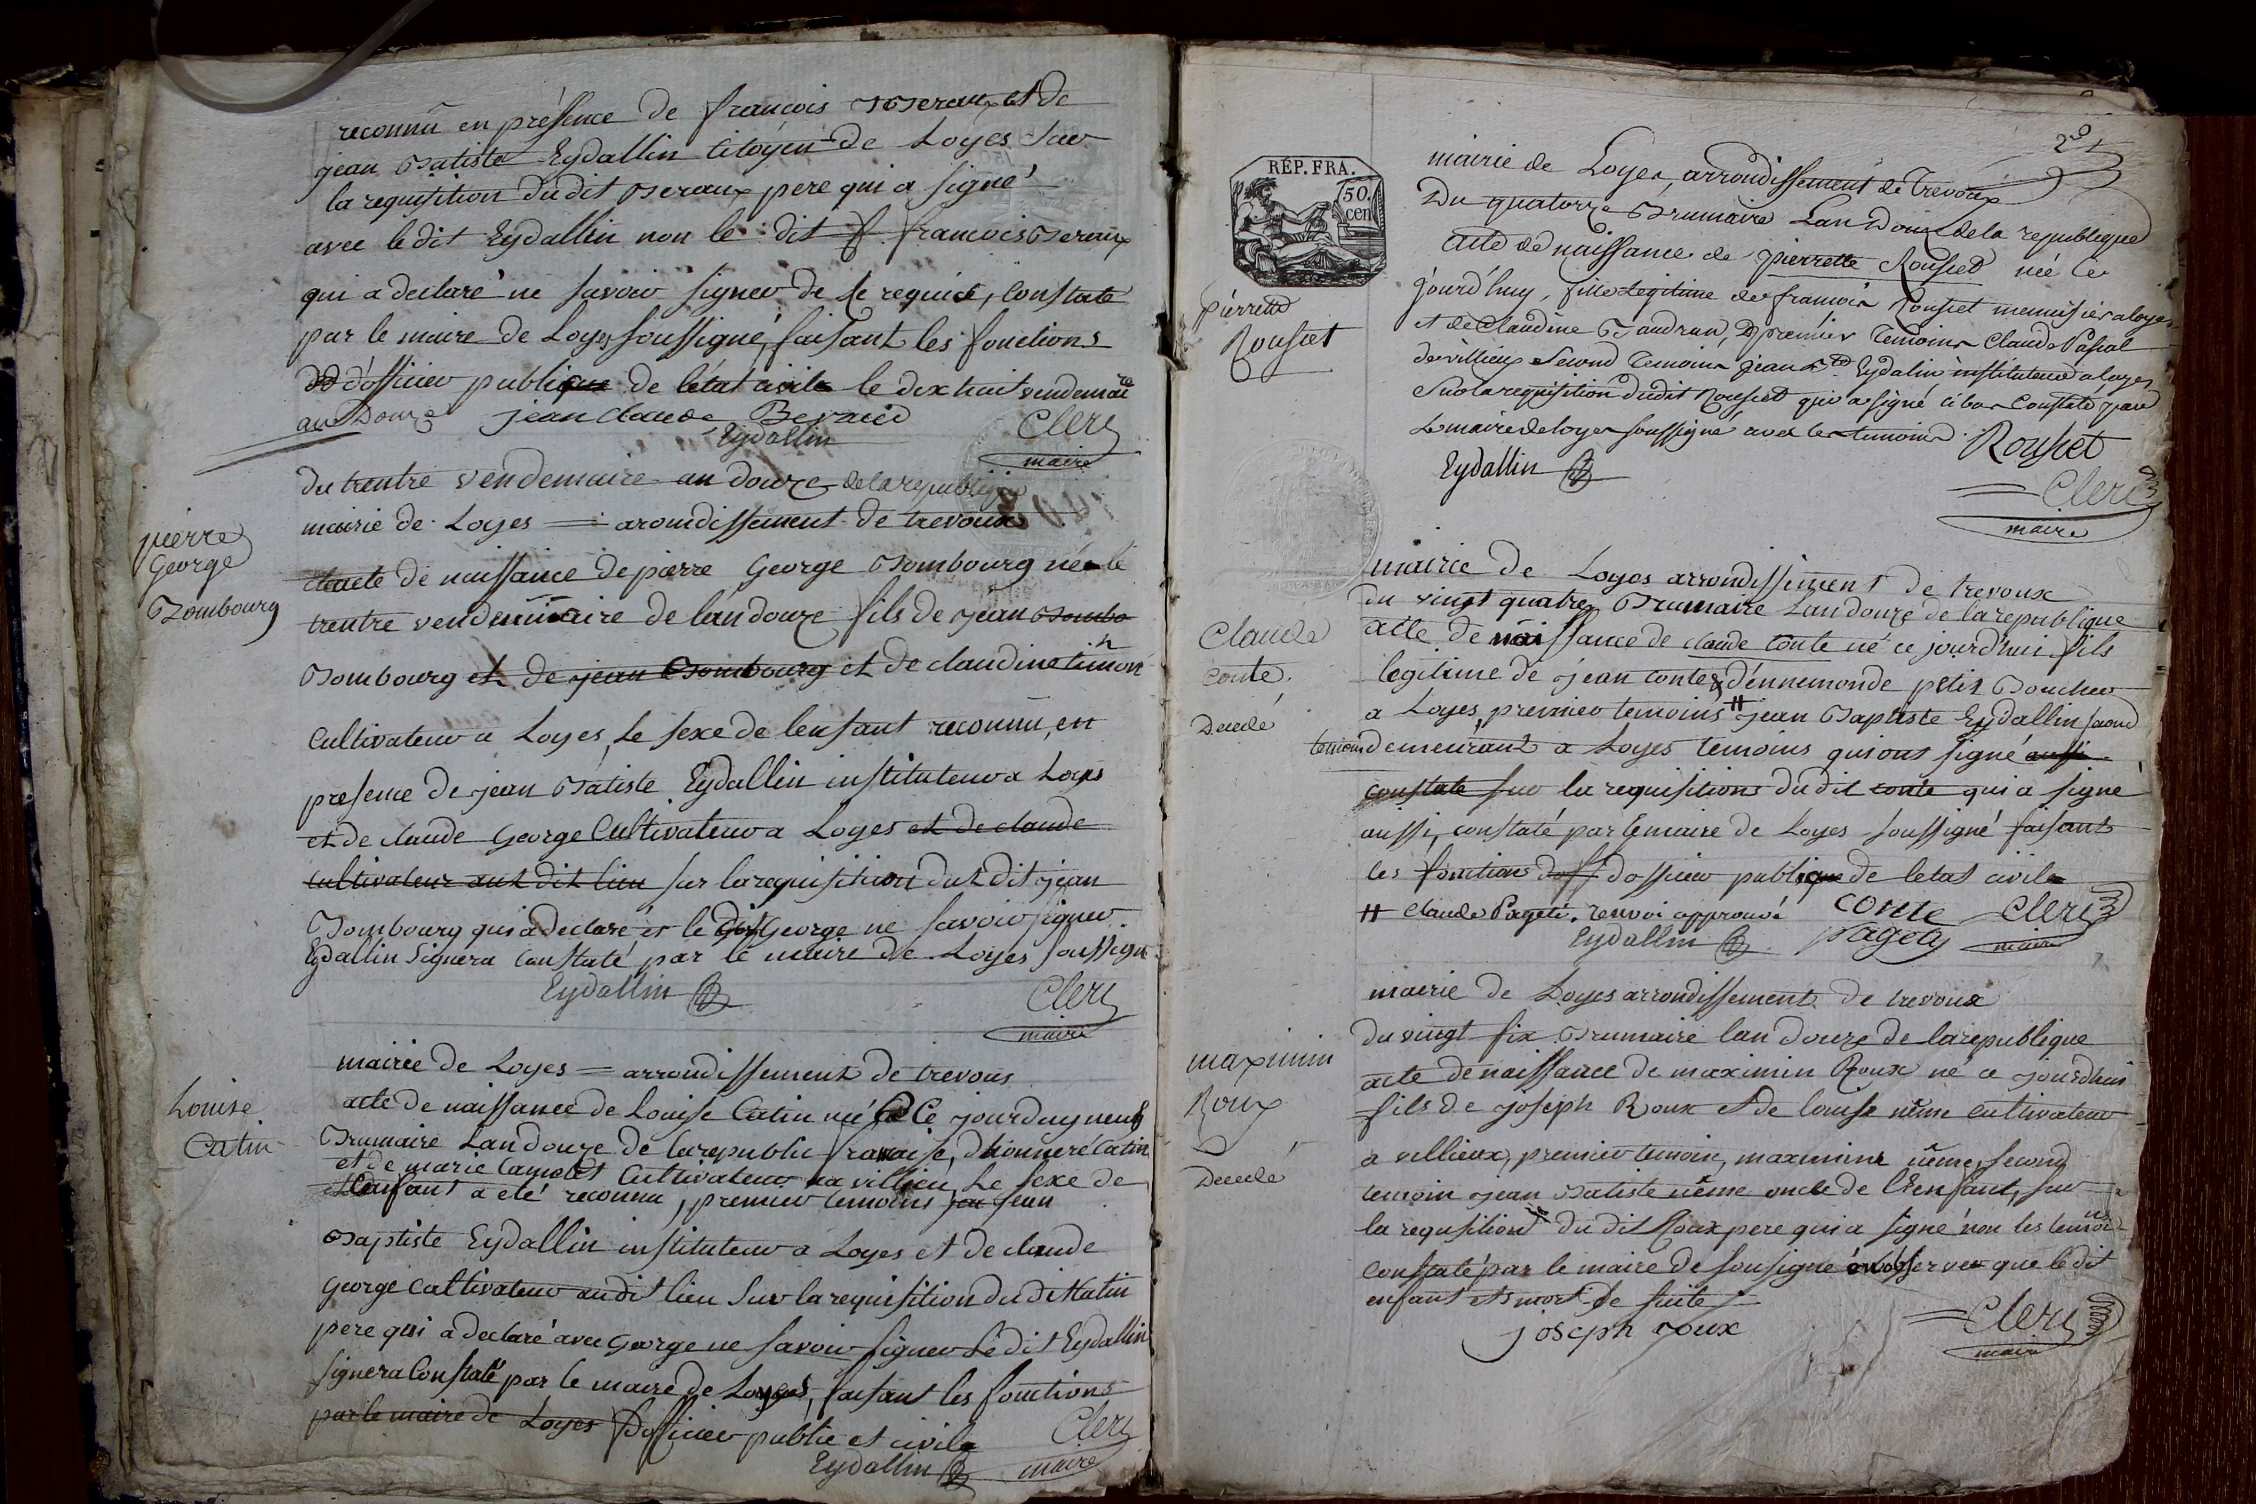 reconnû en présence de françois Beraux et de
jean Batiste Eydallin citoyen de Loyes sur
la requisition dudit Beraux pere qui a signé
avec le dit Eydallin non le dit françois Beraux
qui a declaré ne savoir signer de ce requis, constaté
par le maire de Loyes soussigné, faisant les fonctions
d'officier publique de l'état civile le dix huit vendemaire
an Douze jean claude Beraud
Eydallin
Cleri
maire
pierre
George
Bombourg
du trentre vendemaire an douze de la republique
mairie de Loyes = arondissement de trevoux
acte de naissance de pierre George Bombourg née le
trentre vendemiaire de lan douze fils de jean Bombo
Bombourg et de jean Bombourg et de claudine timon
Cultivateur a Loyes, le sexe de lenfant reconnu, en
presence de jean Batiste Eydallin instituteur a Loyes
et de claude George Cultivateur a Loyes et de claude
cultivateur aut dit lieu sur la requisition dut dit jean
Bombourg qui a declaré et le dit George ne savoir signer
Eydallin signera constaté par le maire de Loyes soussigné
Eydallin
Cleri
maire
Louise
Catin
mairie de Loyes = arrondissement de trevous
acte de naissance de Louise Catin né Ce jourduy neuf
Brumaire Landouze de la republic francaise, dhonneré Catin
et de marie Camolet Cultivateur a villieu, Le sexe de
lenfant a été reconnu, premier temoins jea jean
Baptiste Eydallin instituteur a Loyes et de claude
George Cultivateur audit lieu sur la requisition du dit Catin
pere qui a declaré avec George ne savoir signer Le dit Eydallin
signera Constaté par le maire de Loyes, faisant les fonctions
par le maire de Loyes d'officier public et civile
Eydallin
Cleri
maire
RÉP. FRA.
50.
cen
pierrette
Rousset
mairie de Loyes, arrondissement de Trevoux
Du quatorze Brumaire Lan Douze de la republique
acte de naissance de pierrette Rousset née Ce
jourd'huy, fille légitime de francois Rousset menuisier a loyes
et de Claudine Baudran, premier Temoins Claude Pascal
de villieux second Temoin jean Bte Eydalin instituteur a loyes
sur la requisition dudit Rousset qui a signé ci bas Constaté par
le maire de loyes soussigné avec les temoins.
Rousset
Eydallin
Cleri
maire
Claude
Conte.
Decedé
mairie de Loyes arrondissement de trevoux
du vingt quatre Brumaire Landouze de la republique
acte de naissance de claude conte né ce jourd'hui fils
legitime de jean conte & d'ennemonde petit Boucher
a Loyes, premier temoins # jean Baptiste Eydallin second
temoin demeurant a Loyes temoins qui ont signé aussi
constaté sur la requisitions du dit conte qui a signé
aussi, constaté par le maire de Loyes soussigné faisant
les fonctions doff dofficier publique de letat civile
# claude Pageti. renvoi approuvé
conte
Cleri
maire
Eydallin
Pagety
maximin
Roux
Decedé
mairie de Loyes arrondissement de trevoux
du vingt six Brumaire lan douze de la republique
acte de naissance de maximin Roux né ce jourdhui
fils de joseph Roux et de louise nême cultivateur
a villieux, premier temoin, maximine nême, second
temoin jean Batiste nême oncle de l'enfant, sur
la requsition du dit Roux pere qui a signé non les temoins
constaté par le maire de sousigné a observer que le dit
enfant est mort de suite
joseph roux
Cleri
maire